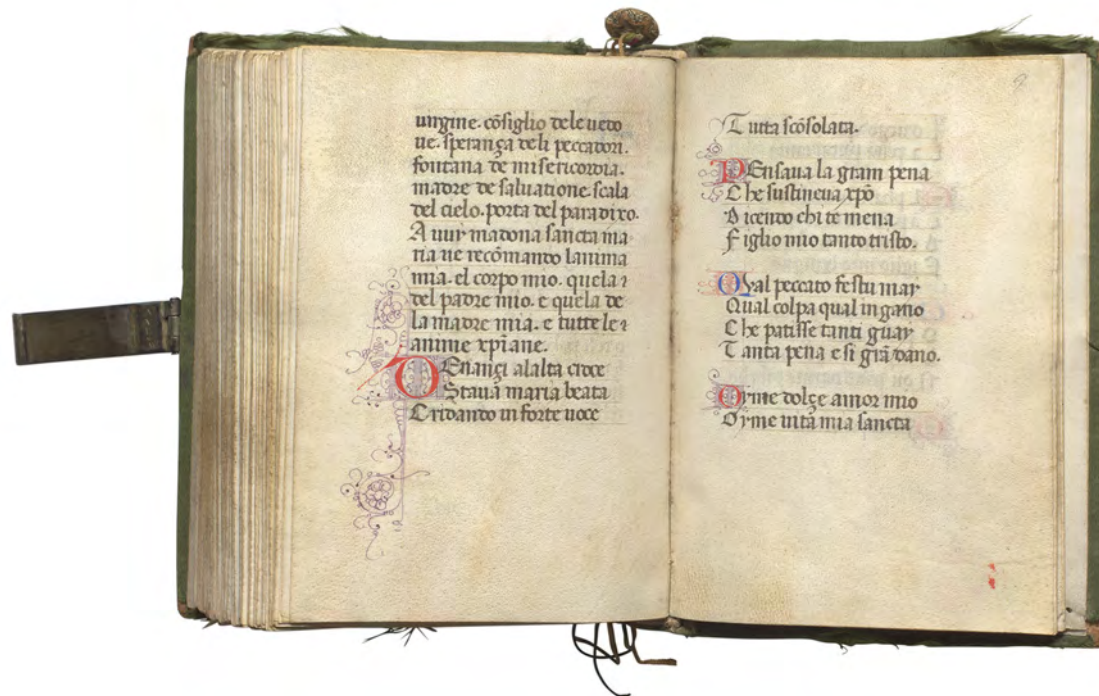 uirgine. cōsiglio dele uedo
ue. sperança deli peccadori.
fontana de misericordia.
madre de saluatione. scala
del cielo. porta del paradixo.
A uuy madona sancta ma
ria ue recōmando lanima
mia. el corpo mio. quela ꝛ
del padre mio. e quela de
la madre mia. e tutte le ꝛ
anime xp̄iane.
DEnançi alalta croce
Staua maria beata
Cridando in forte uoce
9
Tutta scōsolata.
PEnsaua la gram pena
Che sustineua xp̄o
Dicendo chi te mena
Figlio mio tanto tristo.
Qval peccato festu may
Qual colpa qual ingano
Che patisse tanti guay
Tanta pena e si grā dano.
Oyme dolçe amor mio
Oyme uita mia sancta